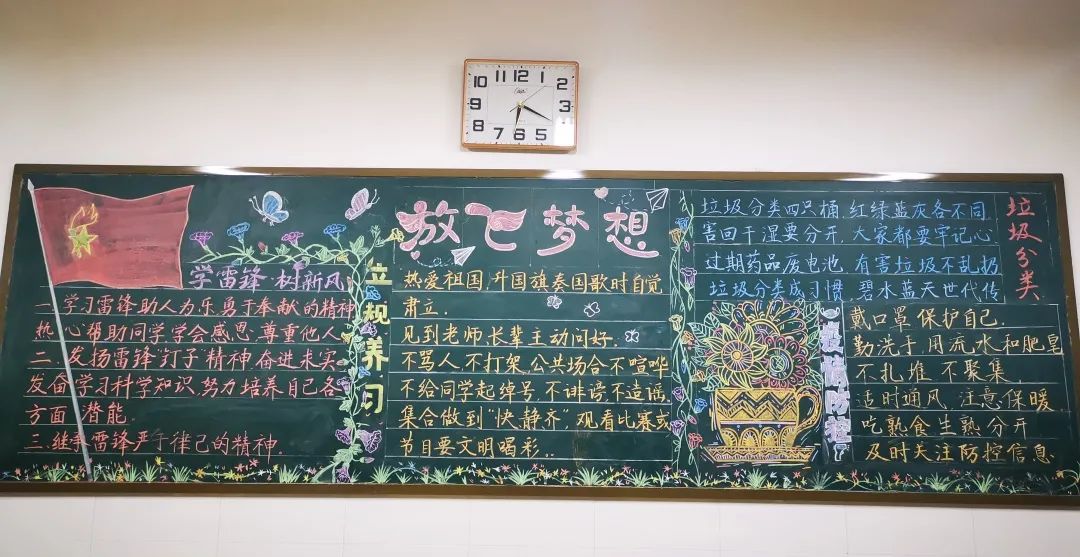 11 12 1
10 2
9 3
8 4
7 6 5
学雷锋·树新风
一、学习雷锋助人为乐、勇于奉献的精神
热心帮助同学,学会感恩、尊重他人
二、发扬雷锋"钉子"精神,奋进求实
发奋学习科学知识,努力培养自己各
方面潜能.
三.继承雷锋严于律己的精神.
立规养习
放飞梦想
热爱祖国,升国旗奏国歌时自觉
肃立.
见到老师长辈主动问好.
不骂人.不打架.公共场合不喧哗
不给同学起绰号.不诽谤不造谣.
集合做到"快.静齐",观看比赛或
节目要文明喝彩..
垃圾分类四只桶,红绿蓝灰各不同.
害回干湿要分开,大家都要牢记心
过期药品废电池,有害垃圾不乱扔
垃圾分类成习惯,碧水蓝天世代传.
垃圾分类
疫情防控
戴口罩 保护自己.
勤洗手 用流水和肥皂
不扎堆 不聚集.
适时通风 注意保暖
吃熟食 生熟分开
及时关注防控信息